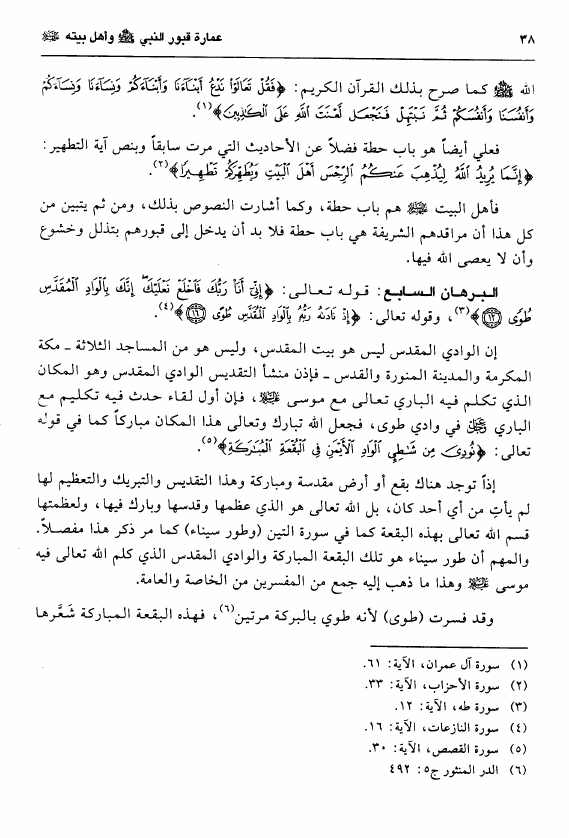 ٣٨
عمارة قبور النبي ﷺ وأهل بيته ﷺ
الله ﷺ كما صرح بذلك القرآن الكريم: ﴿فَقُلْ تَعَالَوْا نَدْعُ أَبْنَاءَنَا وَأَبْنَاءَكُمْ وَنِسَاءَنَا وَنِسَاءَكُمْ
وَأَنفُسَنَا وَأَنفُسَكُمْ ثُمَّ نَبْتَهِلْ فَنَجْعَل لَّعْنَتَ اللَّهِ عَلَى الْكَاذِبِينَ﴾(١).
فعلي أيضاً هو باب حطة فضلاً عن الأحاديث التي مرت سابقاً وبنص آية التطهير:
﴿إِنَّمَا يُرِيدُ اللَّهُ لِيُذْهِبَ عَنكُمُ الرِّجْسَ أَهْلَ الْبَيْتِ وَيُطَهِّرَكُمْ تَطْهِيرًا﴾(٢).
فأهل البيت هم باب حطة، وكما أشارت النصوص بذلك، ومن ثم يتبين من
كل هذا أن مراقدهم الشريفة هي باب حطة فلا بد أن يدخل إلى قبورهم بتذلل وخشوع
وأن لا يعصى الله فيها.
البرهان السابع: قوله تعالى: ﴿إِنِّي أَنَا رَبُّكَ فَاخْلَعْ نَعْلَيْكَ إِنَّكَ بِالْوَادِ الْمُقَدَّسِ
طُوًى ١٢﴾(٣)، وقوله تعالى: ﴿إِذْ نَادَاهُ رَبُّهُ بِالْوَادِ الْمُقَدَّسِ طُوًى ١٦﴾(٤).
إن الوادي المقدس ليس هو بيت المقدس، وليس هو من المساجد الثلاثة - مكة
المكرمة والمدينة المنورة والقدس - فإذن منشأ التقديس الوادي المقدس وهو المكان
الذي تكلم فيه الباري تعالى مع موسى، فإن أول لقاء حدث فيه تكليم مع
الباري في وادي طوى، فجعل الله تبارك وتعالى هذا المكان مباركاً كما في قوله
تعالى: ﴿نُودِيَ مِن شَاطِئِ الْوَادِ الْأَيْمَنِ فِي الْبُقْعَةِ الْمُبَارَكَةِ﴾(٥).
إذاً توجد هناك بقع أو أرض مقدسة ومباركة وهذا التقديس والتبريك والتعظيم لها
لم يأتِ من أي أحد كان، بل الله تعالى هو الذي عظمها وقدسها وبارك فيها، ولعظمتها
قسم الله تعالى بهذه البقعة كما في سورة التين (وطور سيناء) كما مر ذكر هذا مفصلاً.
والمهم أن طور سيناء هو تلك البقعة المباركة والوادي المقدس الذي كلم الله تعالى فيه
موسى وهذا ما ذهب إليه جمع من المفسرين من الخاصة والعامة.
وقد فسرت (طوى) لأنه طوي بالبركة مرتين(٦)، فهذه البقعة المباركة شعَّرها
(١) سورة آل عمران، الآية: ٦١.
(٢) سورة الأحزاب، الآية: ٣٣.
(٣) سورة طه، الآية: ١٢.
(٤) سورة النازعات، الآية: ١٦.
(٥) سورة القصص، الآية: ٣٠.
(٦) الدر المنثور ج٥: ٤٩٢